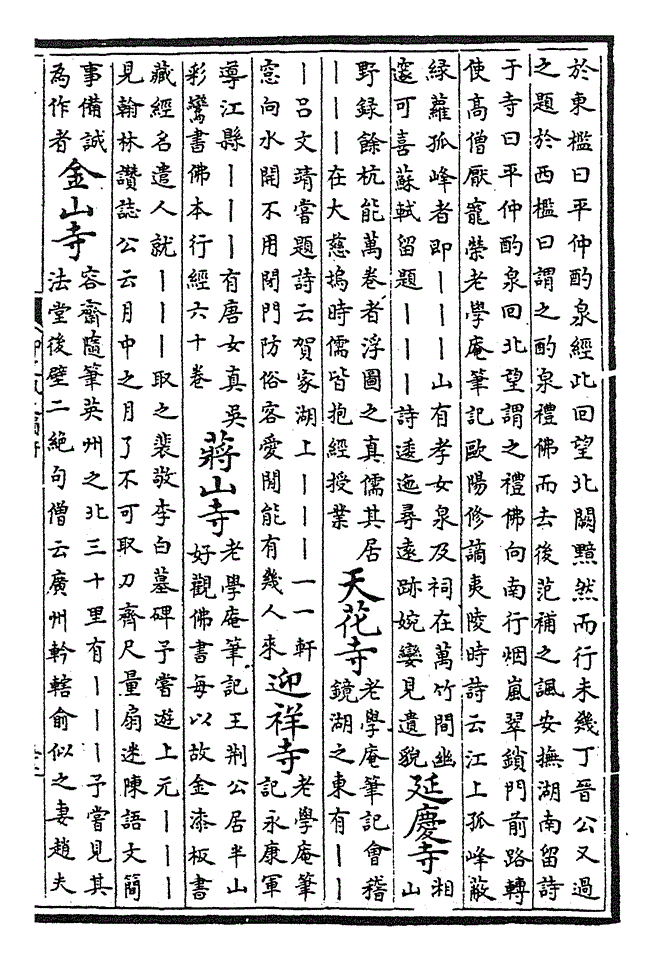 於東檻曰平仲酌泉經此回望北闕黯然而行未幾丁晉公又過
之題於西檻曰謂之酌泉禮佛而去後范補之諷安撫湖南留詩
于寺曰平仲酌泉回北望謂之禮佛向南行烟嵐翠鎖門前路轉
使高僧厭寵榮老學庵筆記歐陽修謫夷陵時詩云江上孤峰蔽
綠蘿孤峰者即丨丨丨山有孝女泉及祠在萬竹間幽
邃可喜蘇軾留題丨丨丨丨詩逶迤尋遠跡婉孌見遺貌
延慶寺
湘
山
野録餘杭能萬卷者浮圖之真儒其居
丨丨丨在大慈塢時儒皆抱經授業
天花寺
老學庵筆記會稽
鏡湖之東有丨丨
丨呂文靖嘗題詩云賀家湖上丨丨丨一一軒
窓向水開不用閉門防俗客愛閒能有幾人來
迎祥寺
老學庵筆
記永康軍
導江縣丨丨丨有唐女真吳
彩鸞書佛本行經六十卷
蔣山寺
老學庵筆記王荆公居半山
好觀佛書每以故金漆板書
藏經名遣人就丨丨丨取之裴敬李白墓碑予嘗遊上元丨丨丨
見翰林讚誌公云月中之月了不可取刀齊尺量扇迷陳語文簡
事備誠
為作者
金山寺
容齋隨筆英州之北三十里有丨丨丨予嘗見其
法堂後壁二絕句僧云廣州軡轄俞似之妻趙夫